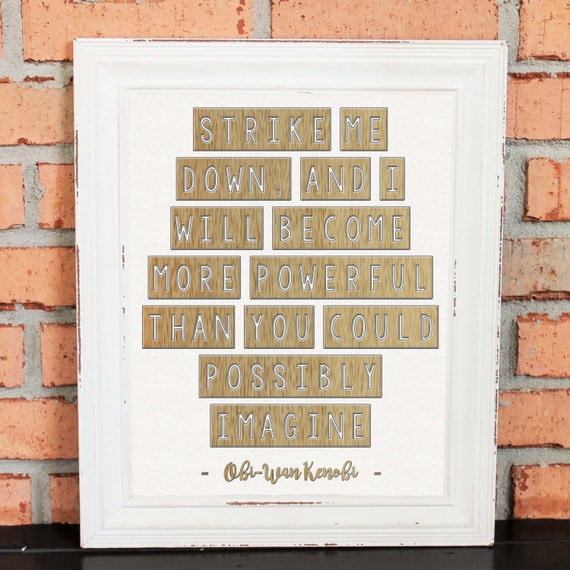 STRIKE ME
DOWN, AND I
WILL BECOME
MORE POWERFUL
THAN YOU COULD
POSSIBLY
IMAGINE
- Obi-Wan Kenobi -